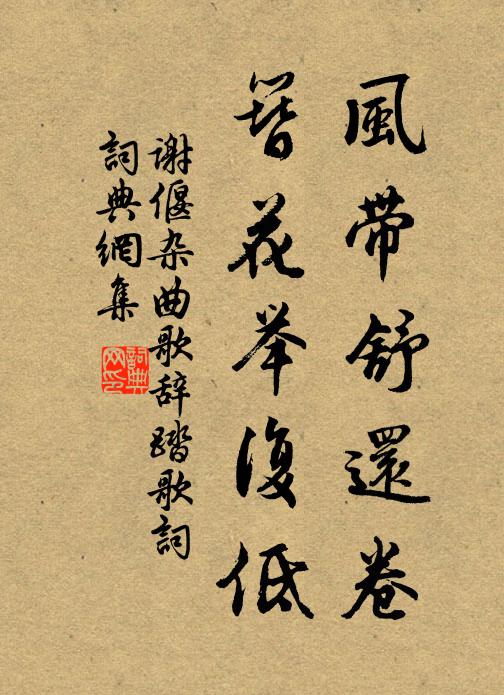 風帶舒還卷
簪花举復低
谢偃杂曲歌辞踏歌詞
詞典網集
詞典網印